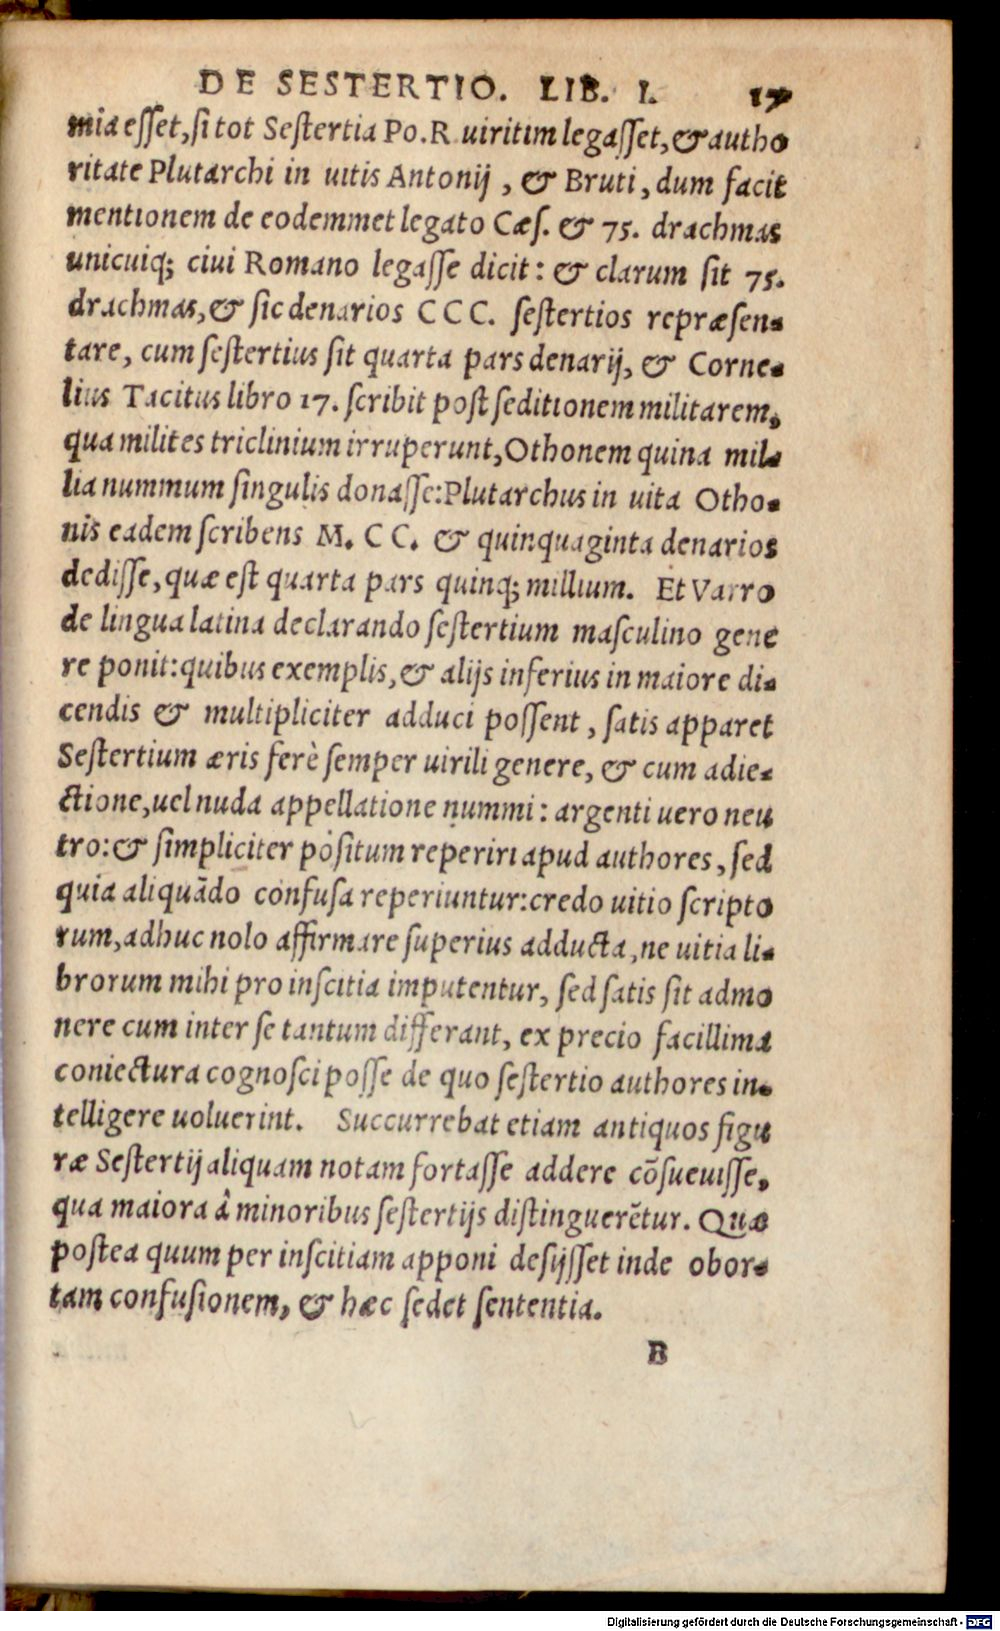 DE SESTERTIO. LIB. I. 17
mia eſſet, ſi tot Seſtertia Po.R uiritim legaſſet, & autho
ritate Plutarchi in uitis Antonij, & Bruti, dum facit
mentionem de eodemmet legato Cæſ. & 75. drachmas
unicuiq; ciui Romano legaſſe dicit: & clarum ſit 75.
drachmas, & ſic denarios CCC. ſeſtertios repræſen-
tare, cum ſeſtertius ſit quarta pars denarij, & Corne-
lius Tacitus libro 17. ſcribit poſt ſeditionem militarem,
qua milites triclinium irruperunt, Othonem quina mil-
lia nummum ſingulis donaſſe: Plutarchus in uita Otho-
nis eadem ſcribens M. CC. & quinquaginta denarios
dediſſe, quæ eſt quarta pars quinq; millium. Et Varro
de lingua latina declarando ſeſtertium maſculino gene
re ponit: quibus exemplis, & alijs inferius in maiore di-
cendis & multipliciter adduci poſſent, ſatis apparet
Seſtertium æris ferè ſemper uirili genere, & cum adie-
ctione, uel nuda appellatione nummi: argenti uero neu
tro: & ſimpliciter poſitum reperiri apud authores, ſed
quia aliquādo confuſa reperiuntur: credo uitio ſcripto
rum, adhuc nolo affirmare ſuperius adducta, ne uitia li-
brorum mihi pro inſcitia imputentur, ſed ſatis ſit admo
nere cum inter ſe tantum differant, ex precio facillima
coniectura cognoſci poſſe de quo ſeſtertio authores in-
telligere uoluerint. Succurrebat etiam antiquos figu
ræ Seſtertij aliquam notam fortaſſe addere cōſueuiſſe,
qua maiora â minoribus ſeſtertijs diſtinguerētur. Quæ
poſtea quum per inſcitiam apponi deſijſſet inde obor-
tam confuſionem, & hæc ſedet ſententia.
B
Digitalisierung gefördert durch die Deutsche Forschungsgemeinschaft - DFG